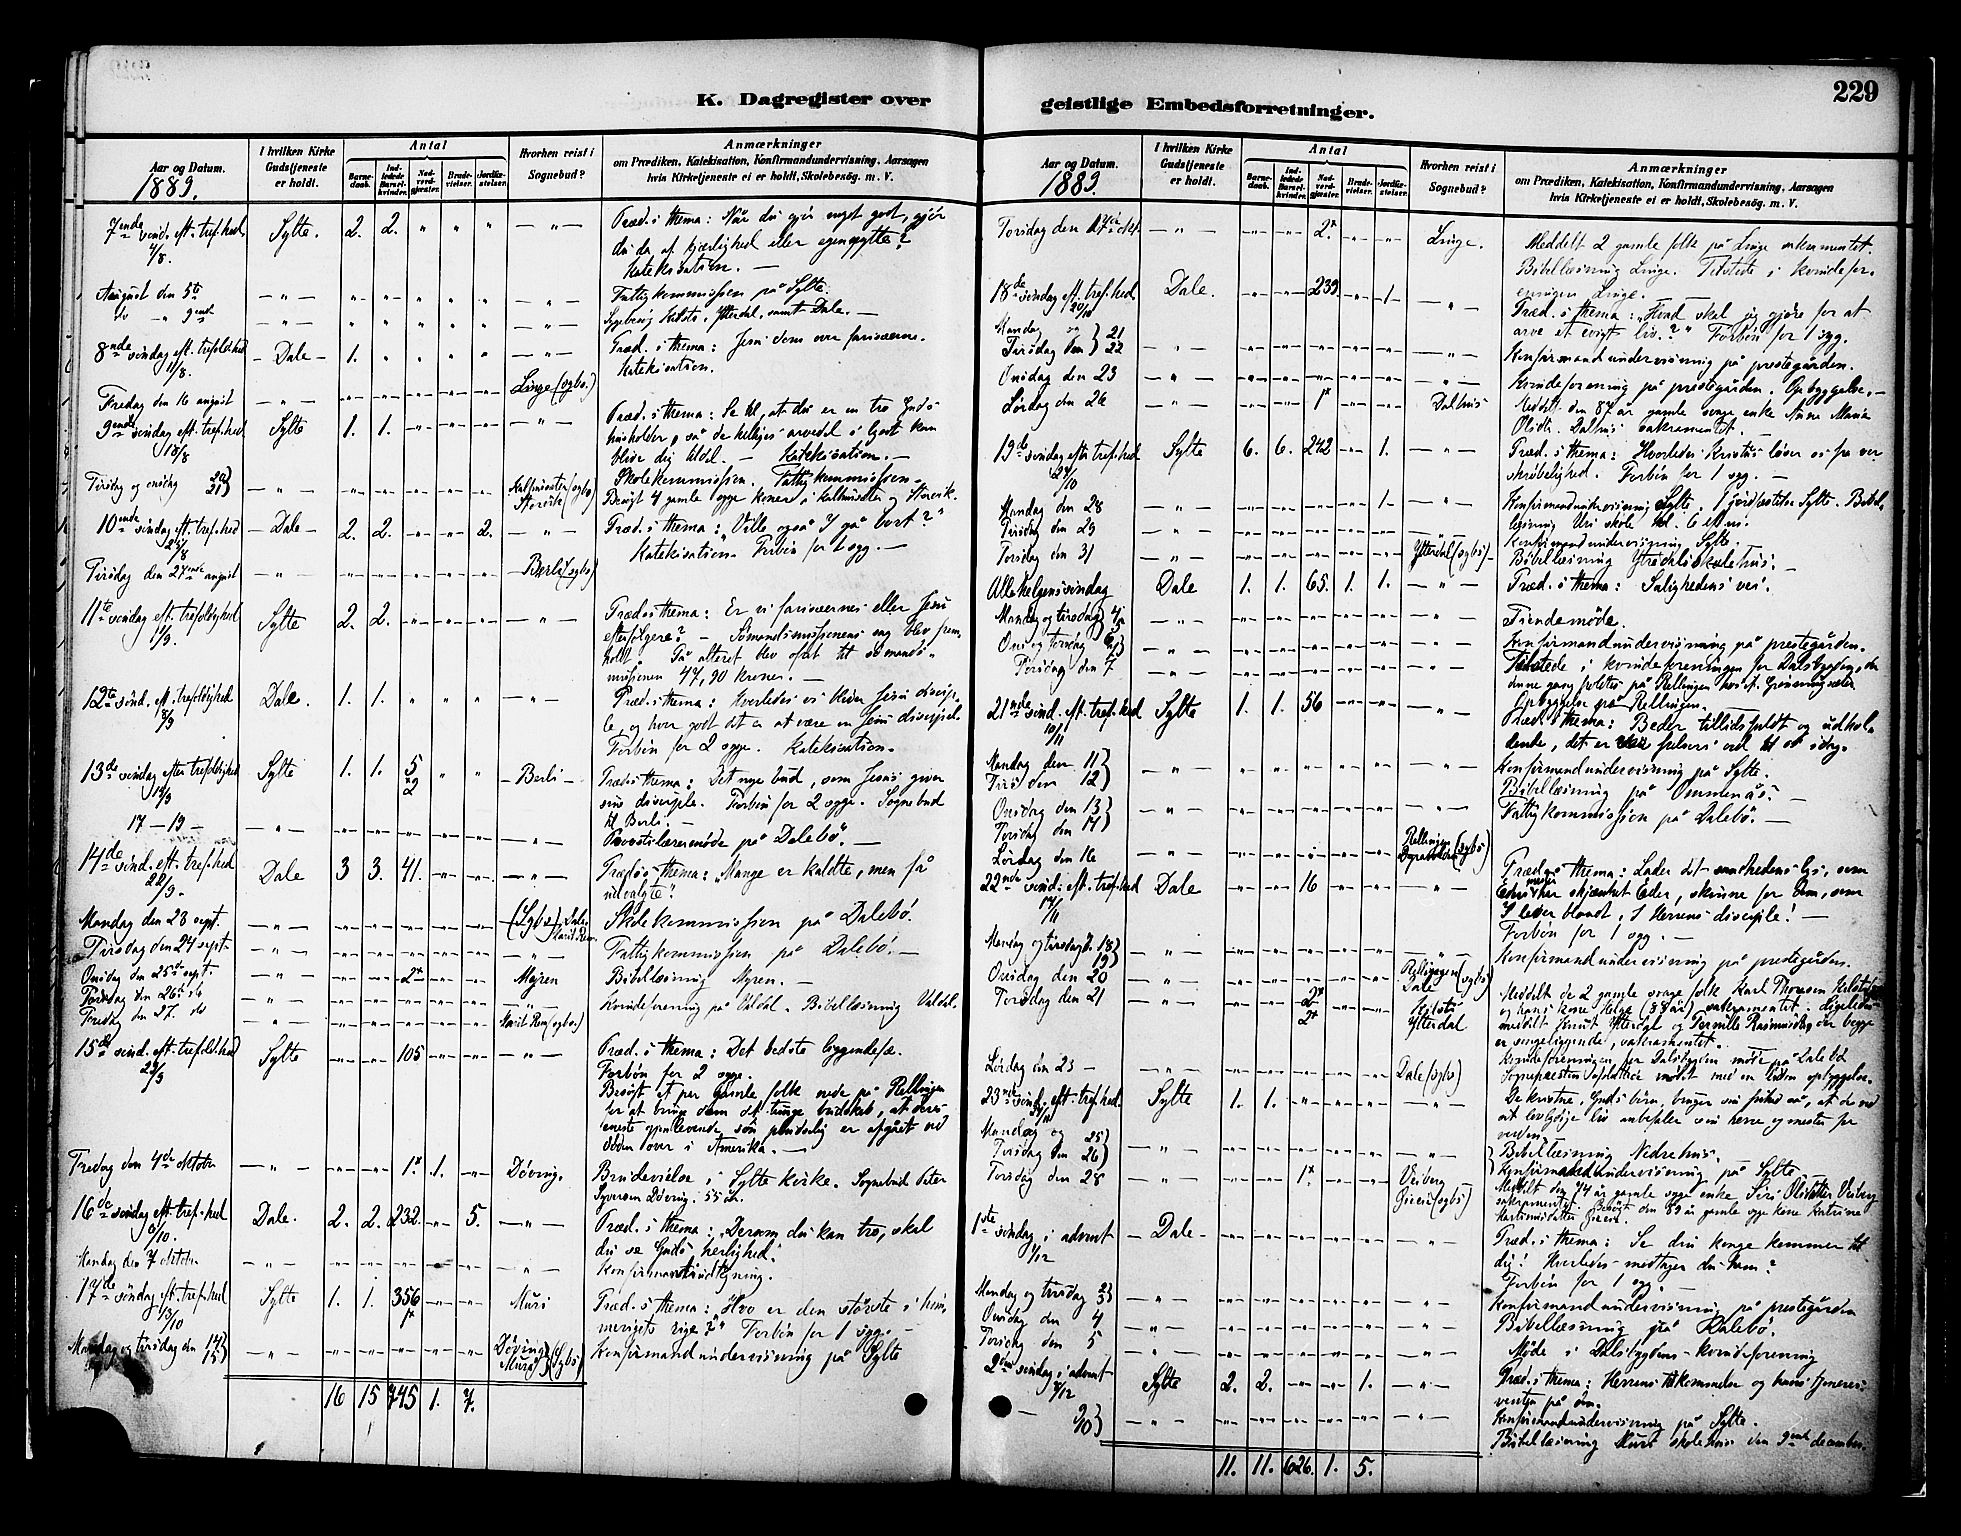 229
K. Dagregister over
geistlige Embedsforretninger.
Aar og Datum.
1889.
I hvilken Kirke Gudstjeneste er holdt.
Antal
Barnedaab.
Indledede Barselkvinder.
Nadvergjester.
Brudevielser.
Jordfæstelser.
Hvorhen reist i Sognebud?
Anmærkninger
om Prædiken, Katekisation, Konfirmandundervisning, Aarsagen
hvis Kirketjeneste ei er holdt, Skolebesög. m. V.
7ende sönd. eft. tref.hed 4/8. Sylte. 2. 2. " " " — " — Præd. s thema: Når du gjör noget godt, gjör
du da af kjærlighed eller egennytte?
Katekisation. —
August den 5te — " — " " " " " — " — Fattigkommissjon på Sylte.
do — " 9ende — " — " " " " " — " — Ytterdal, samt Dale. —
8nde söndag eft. trefold.hed 11/8. — Dale — 1. " " " " — " — Præd. s thema: Jesu dom over fariseerne.
Katekisation.
Fredag den 16 august — " — Linge (sgbs.)
9ende söndag eft. tref.hed 18/8 Sylte 1. 1. — " — Præd. s thema: Se til, at du er en tro Guds
husholder, så de helliges arvedel i lyset kan
blive dig til del. — Katekisation. —
Tirsdag og onsdag 20 21) — " — Storvik (sgbs) Skolekommissjon. Fattigkommissjon.
Besögt 4 gamle syge koner i og Storvik.
10ende söndag eft. tref.hed 25/8 — Dale — 2. 2. 2. — " — Præd. s thema: "Ville også I gå bort?"
Katekisation. Forbön for 1 syg. —
Tirsdag den 27nde august — " — Berli (sgbs)
11te söndag eft. trefoldighed 1/9. Sylte 2. 2. — " — Præd. s thema: Er vi fariseernes eller Jesu
efterfölgere? — Sömandsmissjonens sag blev frem-
holdt. På alteret blev ofret til sömands-
missjonen 47,90 kroner. —
12te sönd. eft. trefoldighed 8/9 Dale. 1. 1. " " " — " — Præd. s thema: Hvorledes vi bliver Jesu discip-
le, og hvor godt det er at være en Jesu discipel.
Forbön for 2 syge. Katekisation.
13de söndag efter trefoldighed 15/9 Sylte 1. 1. 5 2 " " — Berli — Præd. s thema: Det nye bud, som Jesus giver
sine disciple. Forbön for 2 syge. Sognebud
til Berli. —
17 — 19 — — " — — " — Provstilærermöde på Dalebö.
14de sönd. eft. tref.hed 22/9. Dale 3 3. 41. — " — Præd. s thema: "Mange er kaldte, men få
udvalgte."
Mandag den 23 sept. — " — (Sgbs) Dale. Marit Rem. Skolekommissjon på Dalebö.
Tirsdag den 24 sept. — " — — " — Fattigkommissjon på Dalebö. —
Onsdag den 25de sept. — " — 2x Myren Bibellæsning Myren. —
Torsdag den 26de do — " — — " — Kvindeforening på Valdal. Bibellæsning Valdal.
Fredag den 27. do — " — Marit Rem (sgbs.)
15de sönd. eft. trefold.hed 29/9 Sylte 105 — " — Præd. s thema: Det bedste liggendefæ.
Forbön for 2 syge.
Besögt et par gamle folk nede på Rellingen
for at bringe dem det tunge budskab, at deres
eneste gjenlevende sön pludselig er afgået ved
döden over i Amerika. —
Fredag den 4de oktober — " — 1x 1. Döving. Brudevielse i Sylte kirke. Sognebud Peter
Syversen Döving. 55 år.
16de söndag eft. tref.hed 6/10. Dale. 2. 2. 232. 5. — " — Præd. s thema: "Dersom du kan tro, skal
du se Guds herlighed."
Mandag den 7 oktober — " — — " — Konfirmantindtegning.
17de söndag eft. tref.hed 13/10 Sylte 1. 1. 356 1x Muri Præd. s thema: "Hvo er den störste i him-
merigets rige?" Forbön for 1 syg. —
Mandag og tirsdag den 14 15) — " — Döving Muri (Sgbs) Konfirmandundervisning på Sylte
16 15 745 1. 7.
Aar og Datum.
1889.
I hvilken Kirke Gudstjeneste er holdt.
Antal
Barnedaab.
Indledede Barselkvinder.
Nadvergjester.
Brudevielser.
Jordfæstelser.
Hvorhen reist i Sognebud?
Anmærkninger
om Prædiken, Katekisation, Konfirmandundervisning, Aarsagen
hvis Kirketjeneste ei er holdt, Skolebesög. m. V.
Torsdag den 17de okt. — " — 2x Linge. Meddelt 2 gamle folk på Linge sakramentet.
Bibellæsning Linge. Tilstede i kvindefor-
eningen Linge.
18de söndag eft. tref.hed 20/10 Dale. 239. 1 — " — Præd. s thema: "Hvad skal jeg gjöre for at
arve et evigt liv?" Forbön for 1 syg.
Mandag og Tirsdag den 21 22 — " — — " — Konfirmandundervisning på prestegården.
Onsdag den 23 — " — — " — Kvindeforening på prestegården. Opbyggelse. —
Lördag den 26 — " — 1x Dalhus Meddelt den 87 år gamle syge enke Anne Maria
Olsdtr. Dalhus sakramentet. —
19de söndag efter tref.hed 27/10 Sylte 6. 6. 242 1. — " — Præd. s thema: Hvorledes Kristus löser os fra vor
skröbelighed. Forbön for 1 syg. —
Mandag den 28 1 — " — Konfirmandundervisning Sylte. 1 jordfæstelse Sylte. Bibel-
læsning Uri skole kl. 6 eft.m.
Tirsdag den 29 — " — Konfirmandundervisning Sylte.
Torsdag den 31 — " — Ytterdal (sgbs) Bibellæsning Ytredals skolehus. —
Allehelgenssöndag Dale 1. 1. 65. 1. 1. — " — Præd. s thema: Salighedens vei.
Mandag og tirsdag 4 5 — " — Tiendemöde.
Ons og torsdag 6 7) — " — Konfirmandundervisning på prestegården.
Torsdag den 7 — " — Tilstede i kvindeforeningen for Dalsbygden, der
denne gang holdtes på Rellingen hos
Opbyggelse på Rellingen.
21nde sönd. eft. tref.hed 10/11 Sylte 1. 1. 56 — " — Præd. s thema: Beder tillidsfuldt og udhol-
dende, det er
Mandag den 11) Tirsd. den 12) — " — — " — Konfirmandundervisning på Sylte.
Bibellæsning på Ommenås. —
Onsdag den 13 Torsdag den 14) — " — — " — Fattigkommissjon på Dalebö. —
Lördag den 16 — " — Rellingen (sgbs)
22nde sönd. eft. tref.hed 17/11 Dale 16 — " — Præd. s thema: Lader det sandhedens lys, som
Eders mester har skjænket Eder, skinne for dem, som
I lever blandt, I Herrens disciple! —
Forbön for 1 syg. —
Mandag og tirsdag d. 18 19) — " — — " — Konfirmandundervisning på prestegården.
Onsdag den 20 — " — Rellingen Dale (sgbs)
Torsdag den 21 — " — 2x 2x Ytterdal Meddelt de 2 gamle svage folk Karl Thomsen
og hans kone Helge (88 år) sakramentet. Ligeledes
meddelt Knut Ytterdal og Pernille Rasmusdtr. der begge
er sengeliggende, sakramentet.
Lördag den 23 — — " — Dale (sgbs) Kvindeforeningen for Dalsbygden möde på Dalebö
Sognepresten afsluttede mödet med en liden opbyggelse.
23nde sönd. eft. tref.hed. 24/11 Sylte 1. 1. — " — De kristne, Guds börn, bruger sin frihed så, at de ved
sit lovlydige liv anbefaler sin herre og mester for
verden.
Mandag og Tirsdag den 25 26) — " — Bibellæsning Nedrehus.
Konfirmandundervisning på Sylte
Torsdag den 28 — " — 1x Veiberg Gjerde (sgbs) Meddelt den 74 år gamle syge enke Siri Olsdatter Veiberg
sakramentet. Besögt den 89 år gamle syge kone Katrine
Martinusdatter Gjerde.
1ste söndag i advent 1/12 — Dale — — " — Præd. s thema: Se din konge kommer til
dig! Hvorledes modtager du ham?
Forbön for 1 syg —
Mandag og tirsdag 2 3) — " — — " — Konfirmandundervisning på prestegården
Onsdag den 4 — " — Bibellæsning på Dalebö.
Torsdag den 5 — " — Möde i Dalsbygdens kvindeforening
2den söndag i advent 8/12 Sylte 2. 2. 1. — " — Præd. s thema: Herrens tilkommelse og hans tjeneres
venten på den.
— 9 10) — " — — " — Konfirmandundervisning på Sylte.
Bibellæsning Muri skolehus den 9ende december.
11. 11. 626. 1. 5.